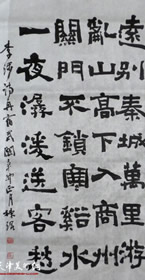 遠別秦城萬里游
亂山高下入商州
關門不鎖寒谿水
一夜潺湲送客愁
李涉詩再宿武關 正月